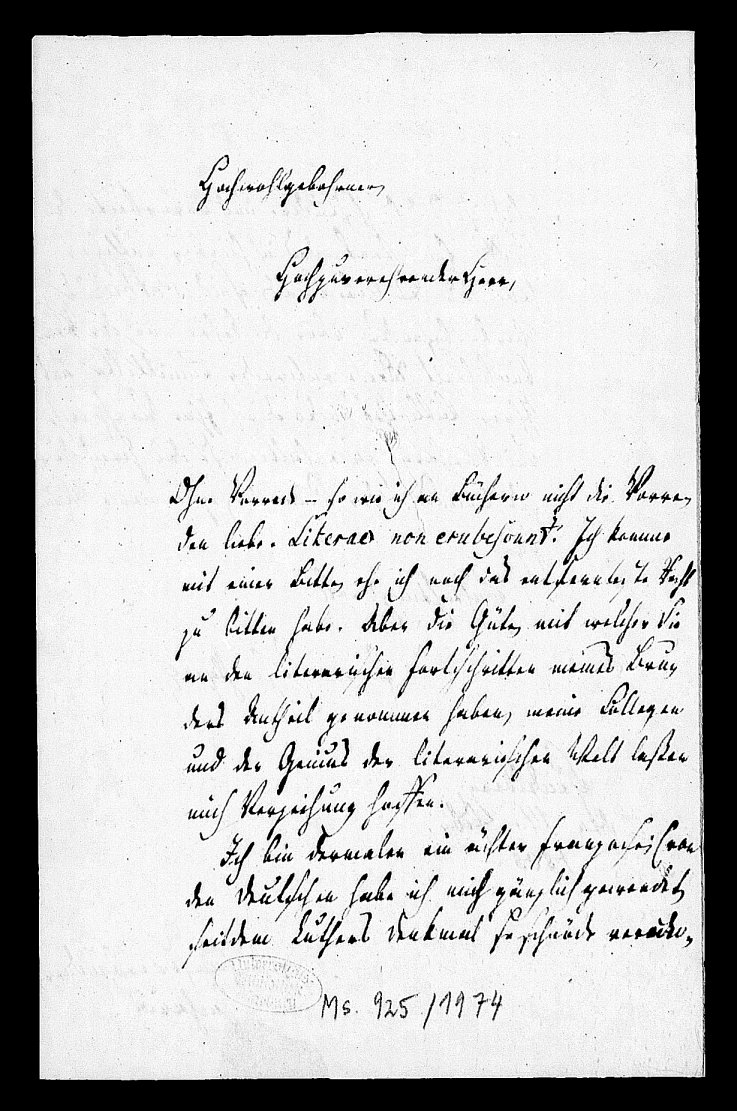 Hochwohlgebohrner,
Hochzuverehrender Herr,
Ohne Vorrede – so wie ich an Büchern nicht die Vorre-
den liebe. Literae non erubescunt. Ich komme
mit einer Bitte, ehe ich noch das entfernteste Recht
zu bitten habe. Aber die Güte, mit welcher Sie
an den literarischen Fortschritten meines Bru-
ders Antheil genommen haben, meine Collegen
und der Genius der literarischen Welt laßen
mich Verzeihung hoffen.
Ich bin dermalen ein ächter Franzose; von
den Deutschen habe ich mich gänzlich gewendet,
seitdem Luthers Denkmal so schnöde
Ms. 925/1974